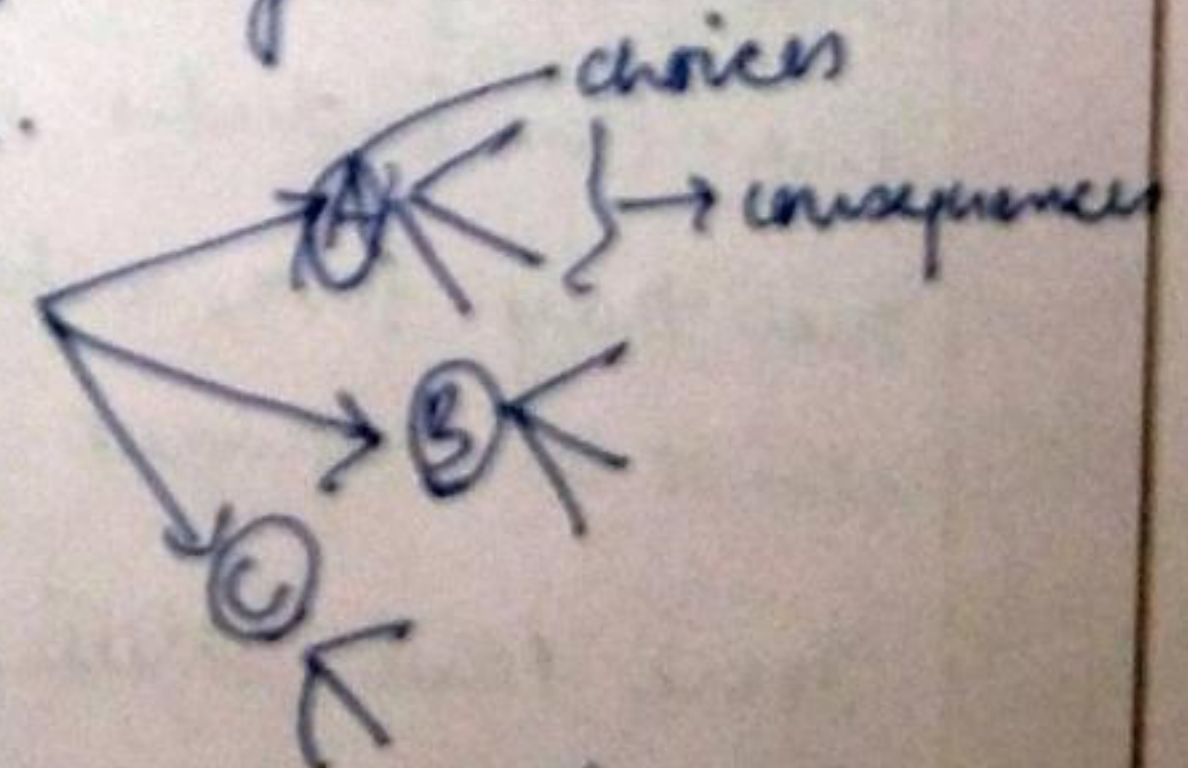 choices
A
consequences
B
C